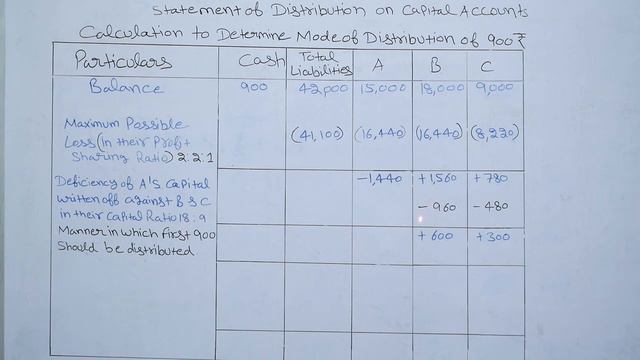 Statement of Distribution on Capital Accounts
Calculation to Determine Mode of Distribution of 900₹
Particulars Cash Total Liabilities A B C
Balance 900 42,000 15,000 18,000 9,000
Maximum Possible
Loss (in their Profit (41,100) (16,440) (16,440) (8,220)
Sharing Ratio) 2:2:1
Deficiency of A's Capital -1,440 +1,560 +780
written off against B & C - 960 - 480
in their Capital Ratio 18:9
Manner in which first 900 +600 +300
Should be distributed.